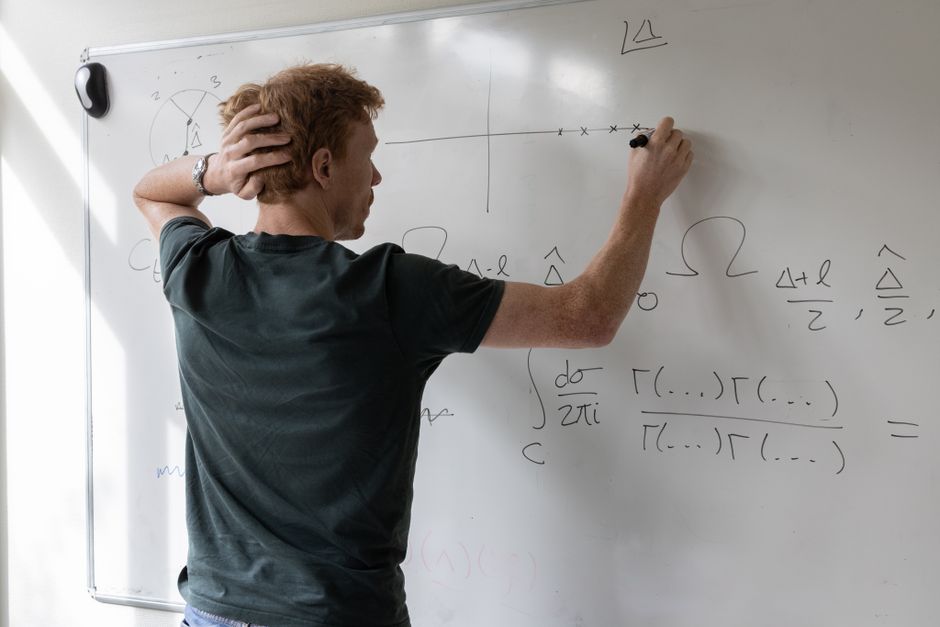 Δ
2 3
Δ̂
Δ-l Δ̂
Ω Δ+l/2 , Δ̂/2 ,
∫_C dσ/2πi Γ(...)Γ(...)/Γ(...)Γ(...) =